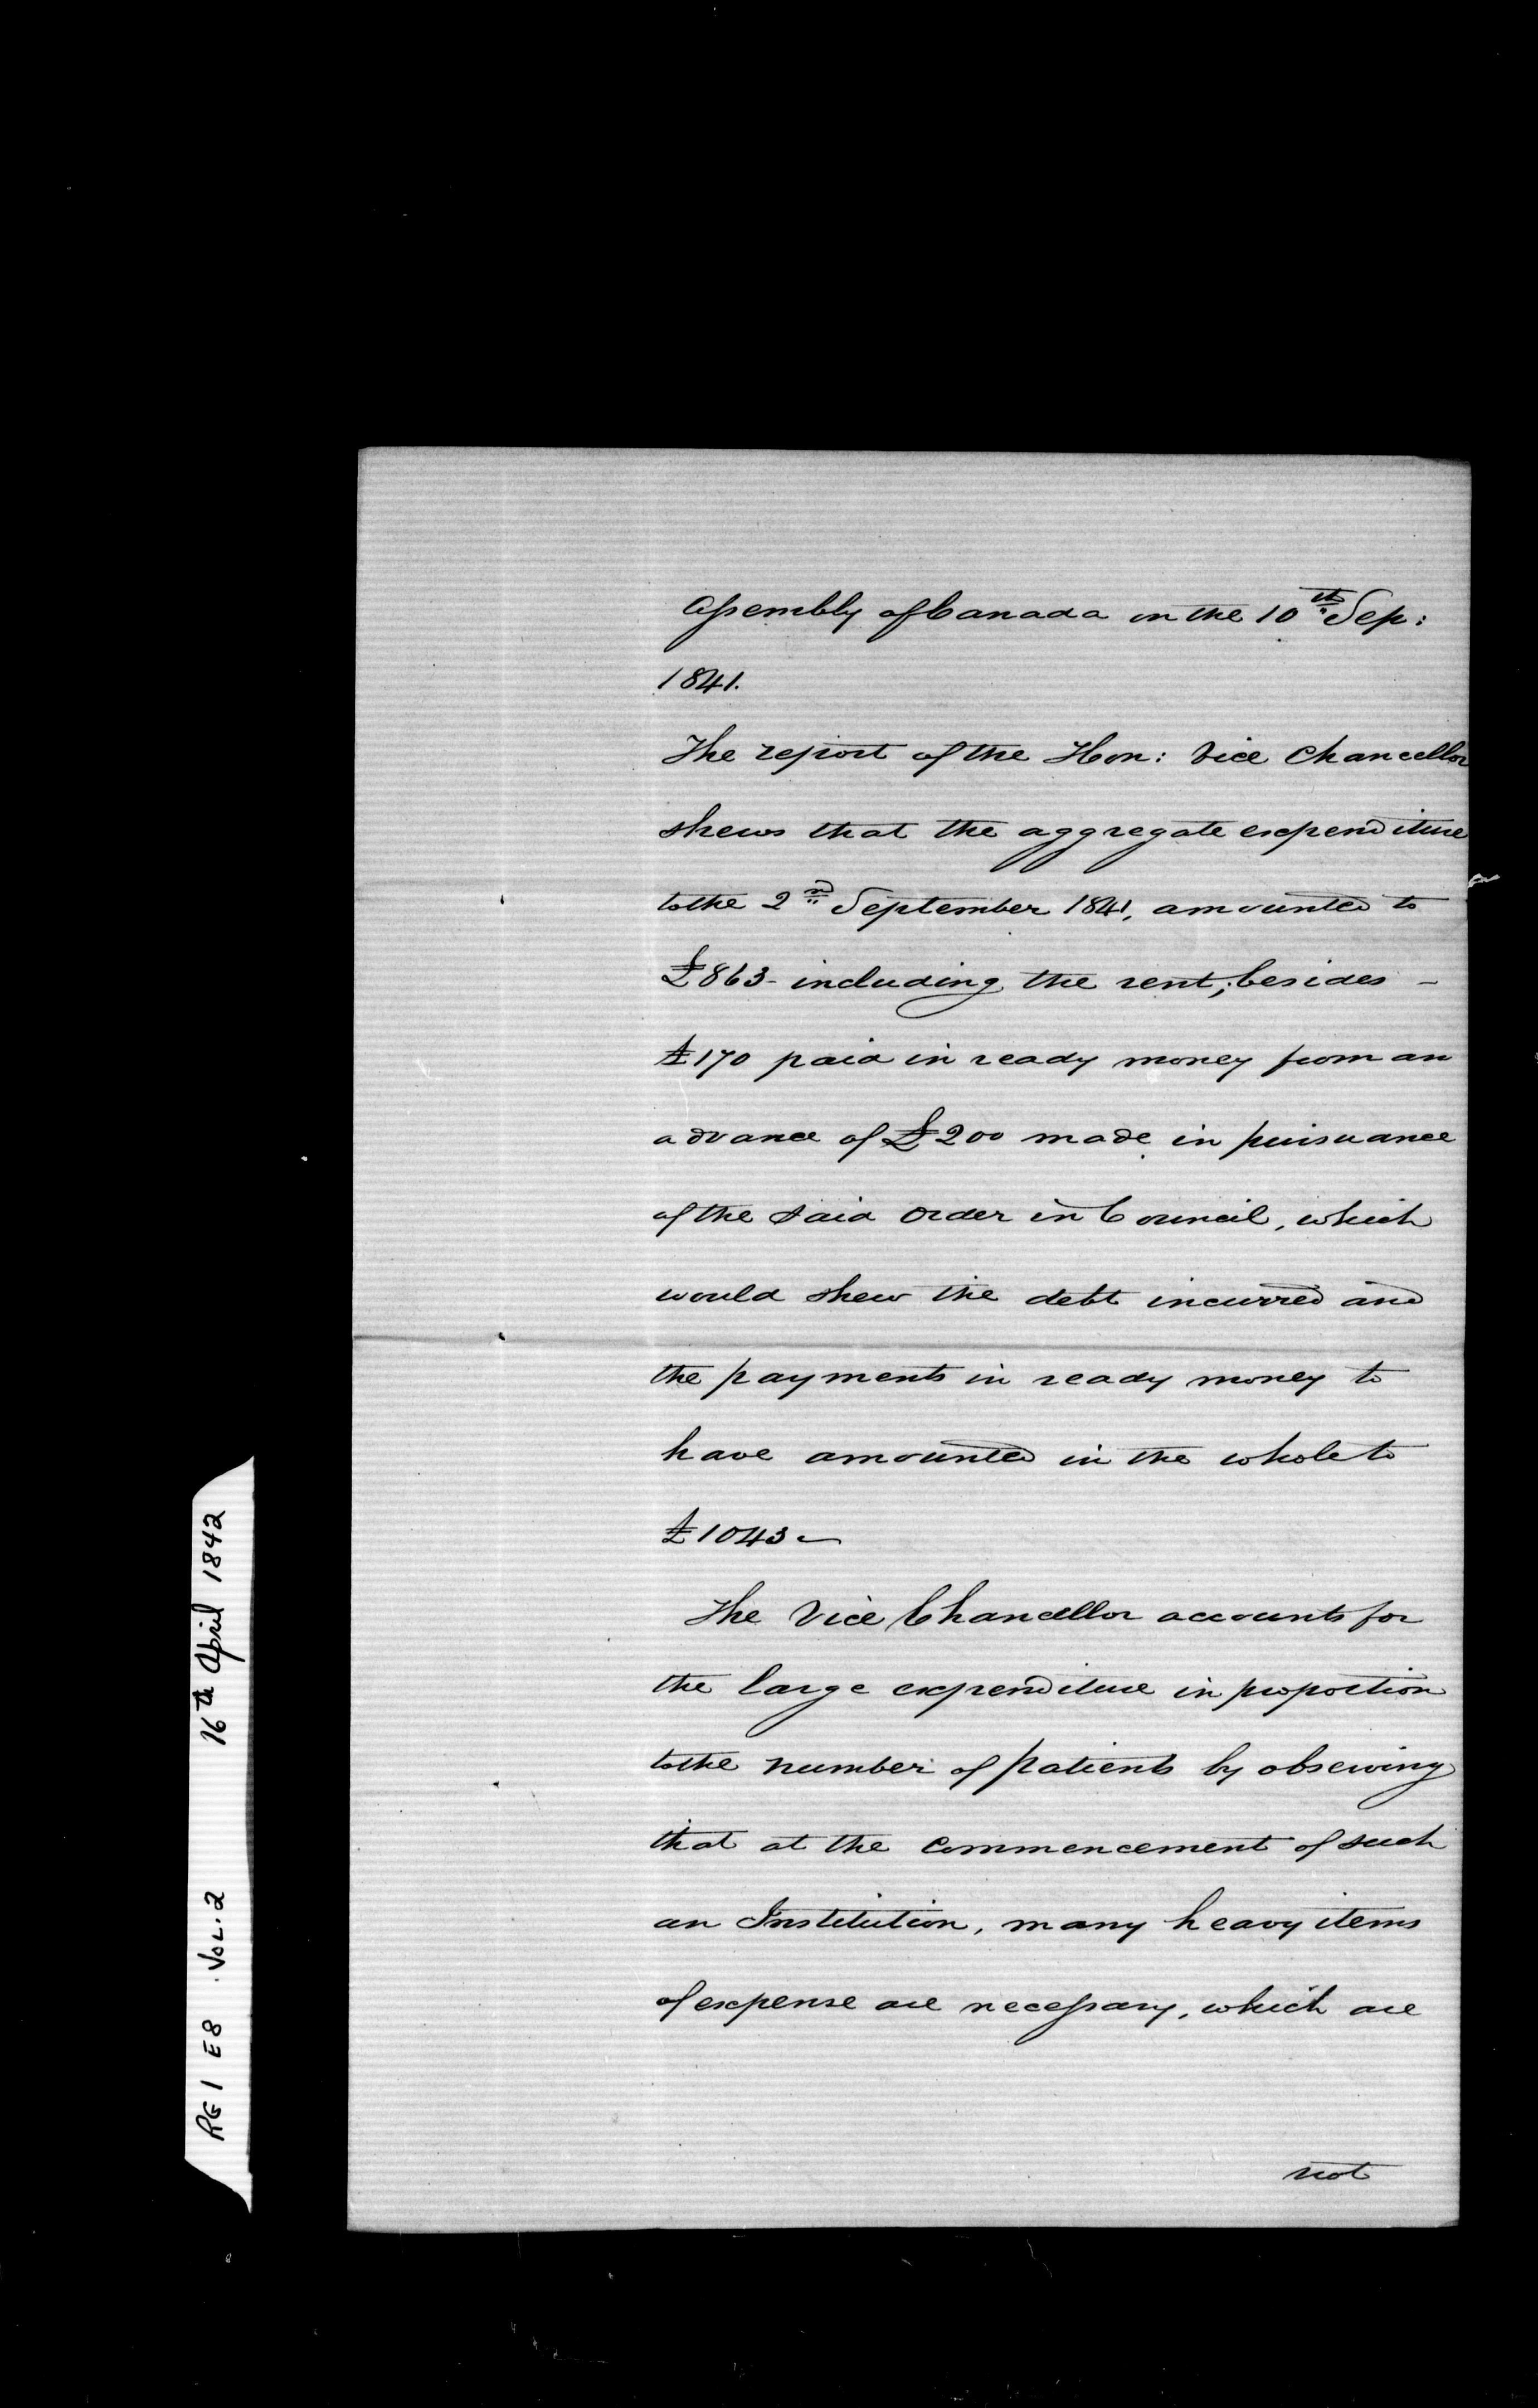 Assembly of Canada on the 10th Sep:
1841.
The report of the Hon: Vice Chancellor
shews that the aggregate expenditure
to the 2nd September 1841, amounted to
£863- including the rent; besides -
£170 paid in ready money from an
advance of £200 made in pursuance
of the said Order in Council, which
would shew the debt incurred and
the payments in ready money to
have amounted in the whole to
£1043 -
The Vice Chancellor accounts for
the large expenditure in proportion
to the number of patients by observing
that at the commencement of such
an Institution, many heavy items
of expense are necessary, which are
not
RG 1 E8 VOL. 2 16th April 1842